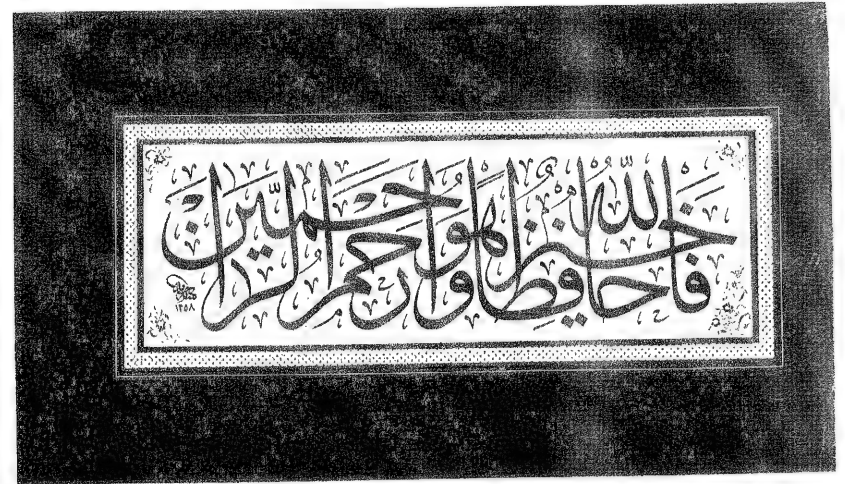 فَاللَّهُ خَيْرٌ حَافِظًا وَهُوَ أَرْحَمُ الرَّاحِمِينَ
١٣٥٨